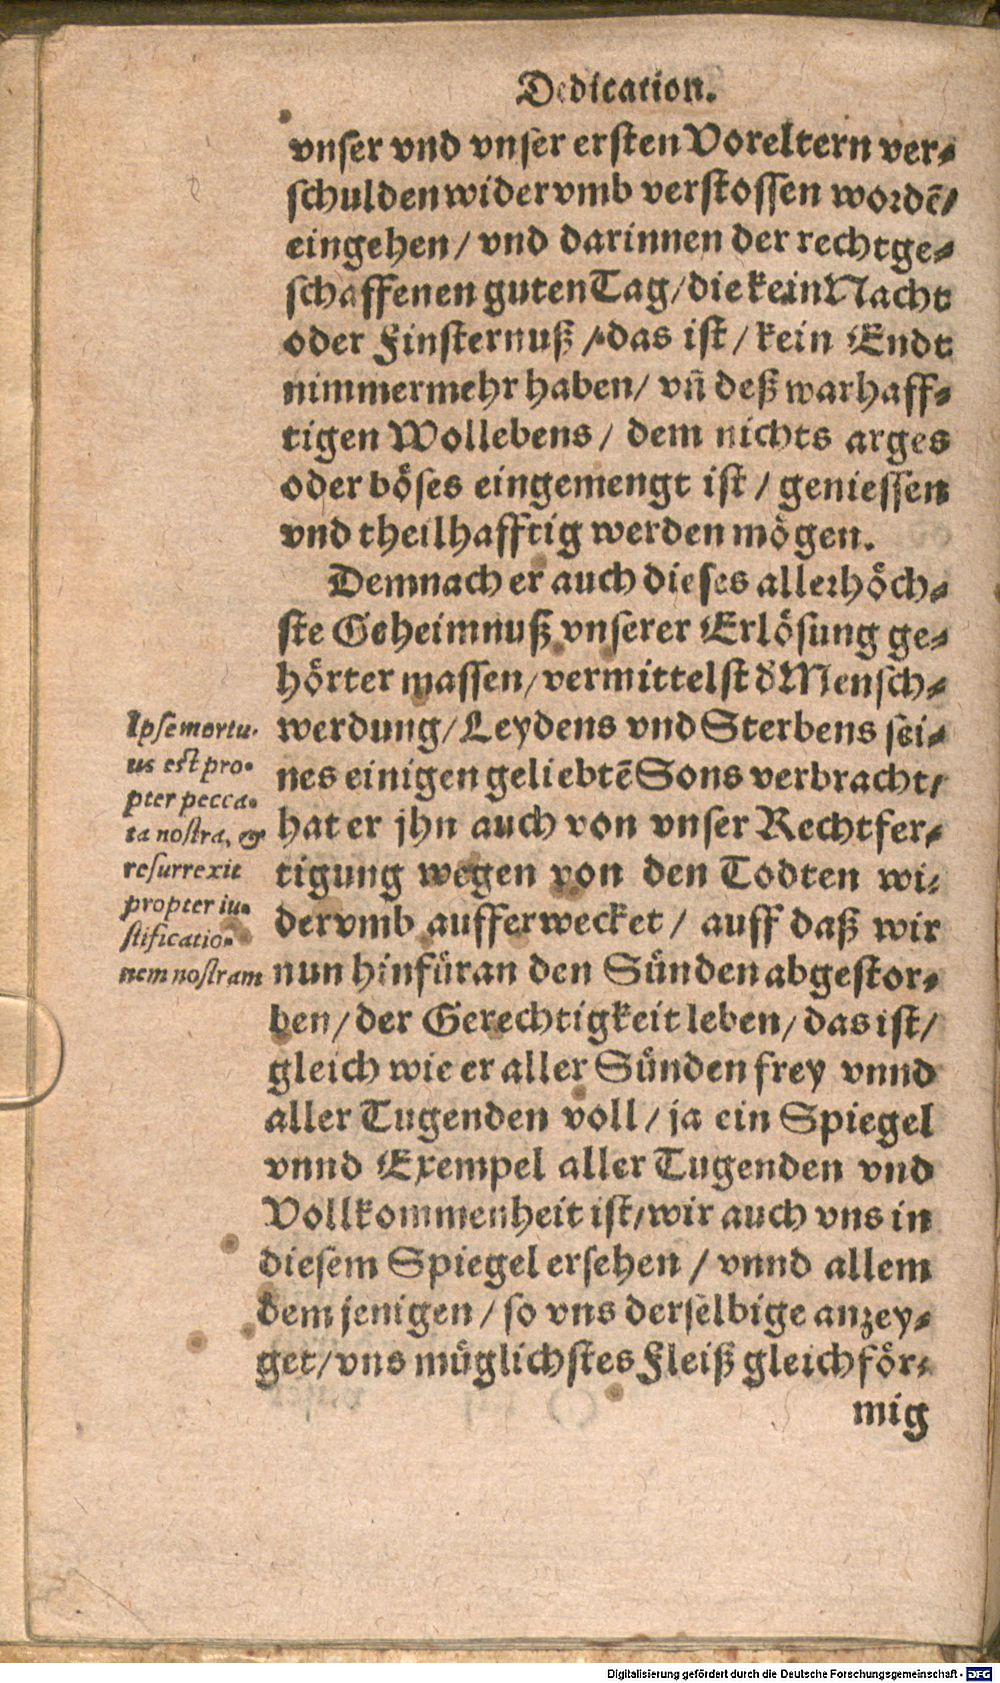 Dedication.
vnser vnd vnser ersten Voreltern ver-
schulden widervmb verstossen wordē/
eingehen/ vnd darinnen der rechtge-
schaffenen guten Tag/ die kein Nacht
oder Finsternuß / das ist/ kein Endt
nimmermehr haben/ vn̄ deß warhaff-
tigen Wollebens/ dem nichts arges
oder böses eingemengt ist/ geniessen
vnd theilhafftig werden mögen.
Demnach er auch dieses allerhöch-
ste Geheimnuß vnserer Erlösung ge-
hörter massen/ vermittelst d' Mensch-
werdung/ Leydens vnd Sterbens sei-
nes einigen geliebtē Sons verbracht/
hat er jhn auch von vnser Rechtfer-
tigung wegen von den Todten wi-
dervmb aufferwecket/ auff daß wir
nun hinfüran den Sünden abgestor-
ben/ der Gerechtigkeit leben/ das ist/
gleich wie er aller Sünden frey vnnd
aller Tugenden voll/ ja ein Spiegel
vnnd Exempel aller Tugenden vnd
Vollkommenheit ist/ wir auch vns in
diesem Spiegel ersehen / vnnd allem
dem jenigen/ so vns derselbige anzey-
get/ vns müglichstes Fleiß gleichför-
mig
Ipse mortu-
us est pro-
pter pecca-
ta nostra, &
resurrexit
propter iu-
stificatio-
nem nostram
Digitalisierung gefördert durch die Deutsche Forschungsgemeinschaft - DFG